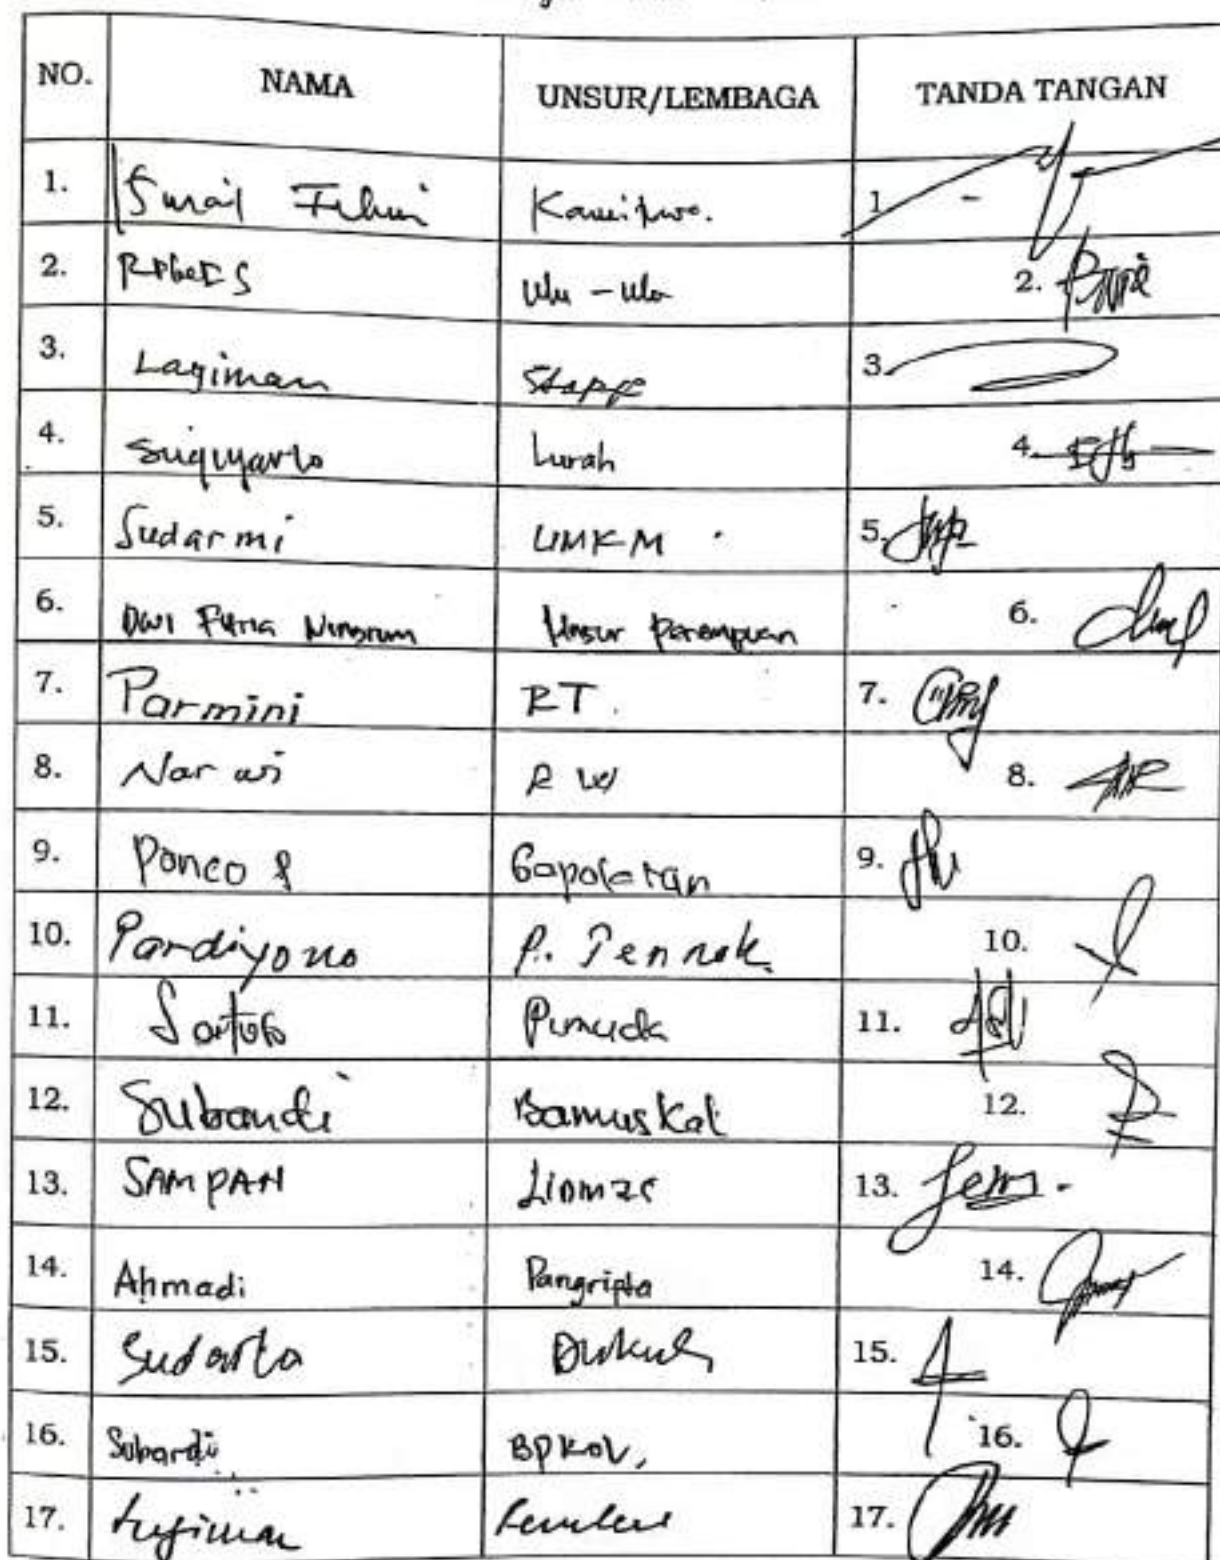 NO. NAMA UNSUR/LEMBAGA TANDA TANGAN
1. Kamituwo. 1
2. Ulu - Ulu 2.
3. Lagiman Staff 3.
4. Sugiyarto Lurah 4.
5. Sudarmi UMKM 5.
6. Dwi Fitria Ningrum Unsur Perempuan 6.
7. Parmini RT. 7.
8. Narwi RW 8.
9. Ponco S Gapoktan 9.
10. Pardiyono P. Ternak. 10.
11. Pemuda 11.
12. Subandi Bamuskal 12.
13. SAMPAN Linmas 13.
14. Ahmadi Pangripta 14.
15. Sudarta Dukuh 15.
16. Subardi BPKAL, 16.
17. Tugiman 17.